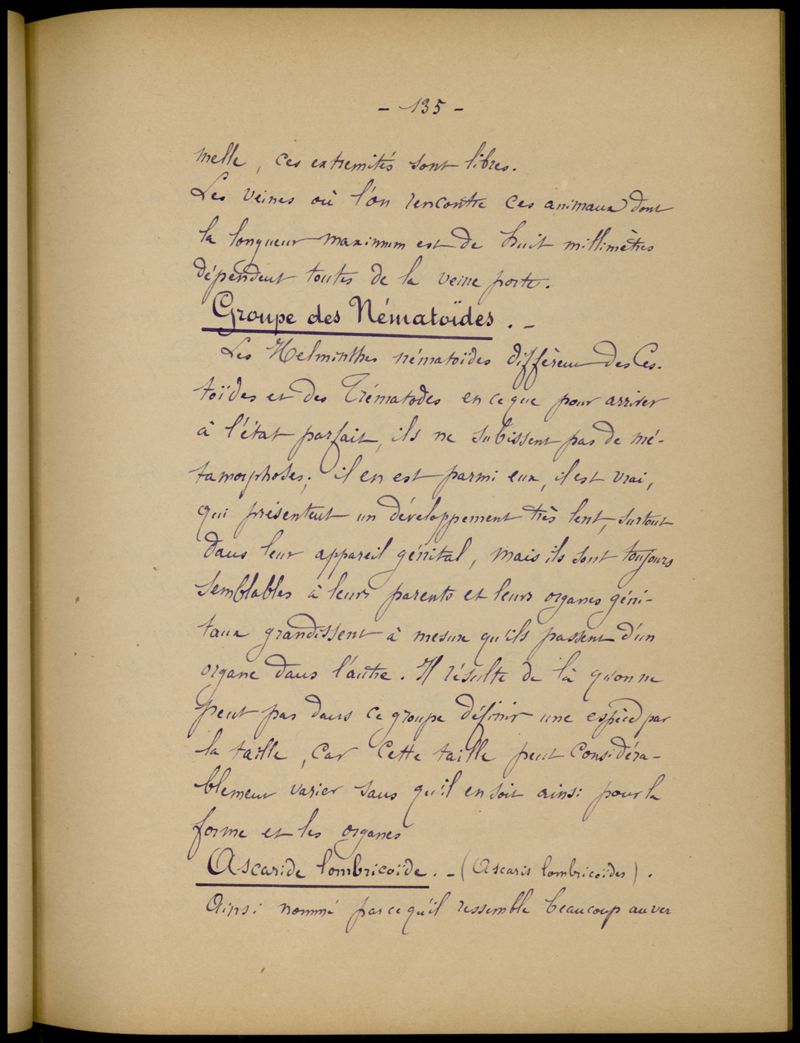 - 135 -
melle, ces extremités sont libres.
Les veines où l'on rencontre ces animaux dont
la longueur maximum est de huit millimètres
dépendent toutes de la veine porte.
Groupe des Nématoïdes. -
Les Helminthes nématoïdes diffèrent des Ces-
toïdes et des Trématodes en ce que pour arriver
à l'état parfait, ils ne subissent pas de mé-
tamorphoses; il en est parmi eux, il est vrai,
qui présentent un développement très lent, surtout
dans leur appareil génital, mais ils sont toujours
semblables à leurs parents et leurs organes géni-
taux grandissent à mesure qu'ils passent d'un
organe dans l'autre. Il résulte de là qu'on ne
peut pas dans ce groupe définir une espèce par
la taille, car cette taille peut considéra-
blement varier sans qu'il en soit ainsi pour la
forme et les organes
Ascaride lombricoïde. - (Ascaris lombricoïdes).
Ainsi nommé parce qu'il ressemble beaucoup au ver